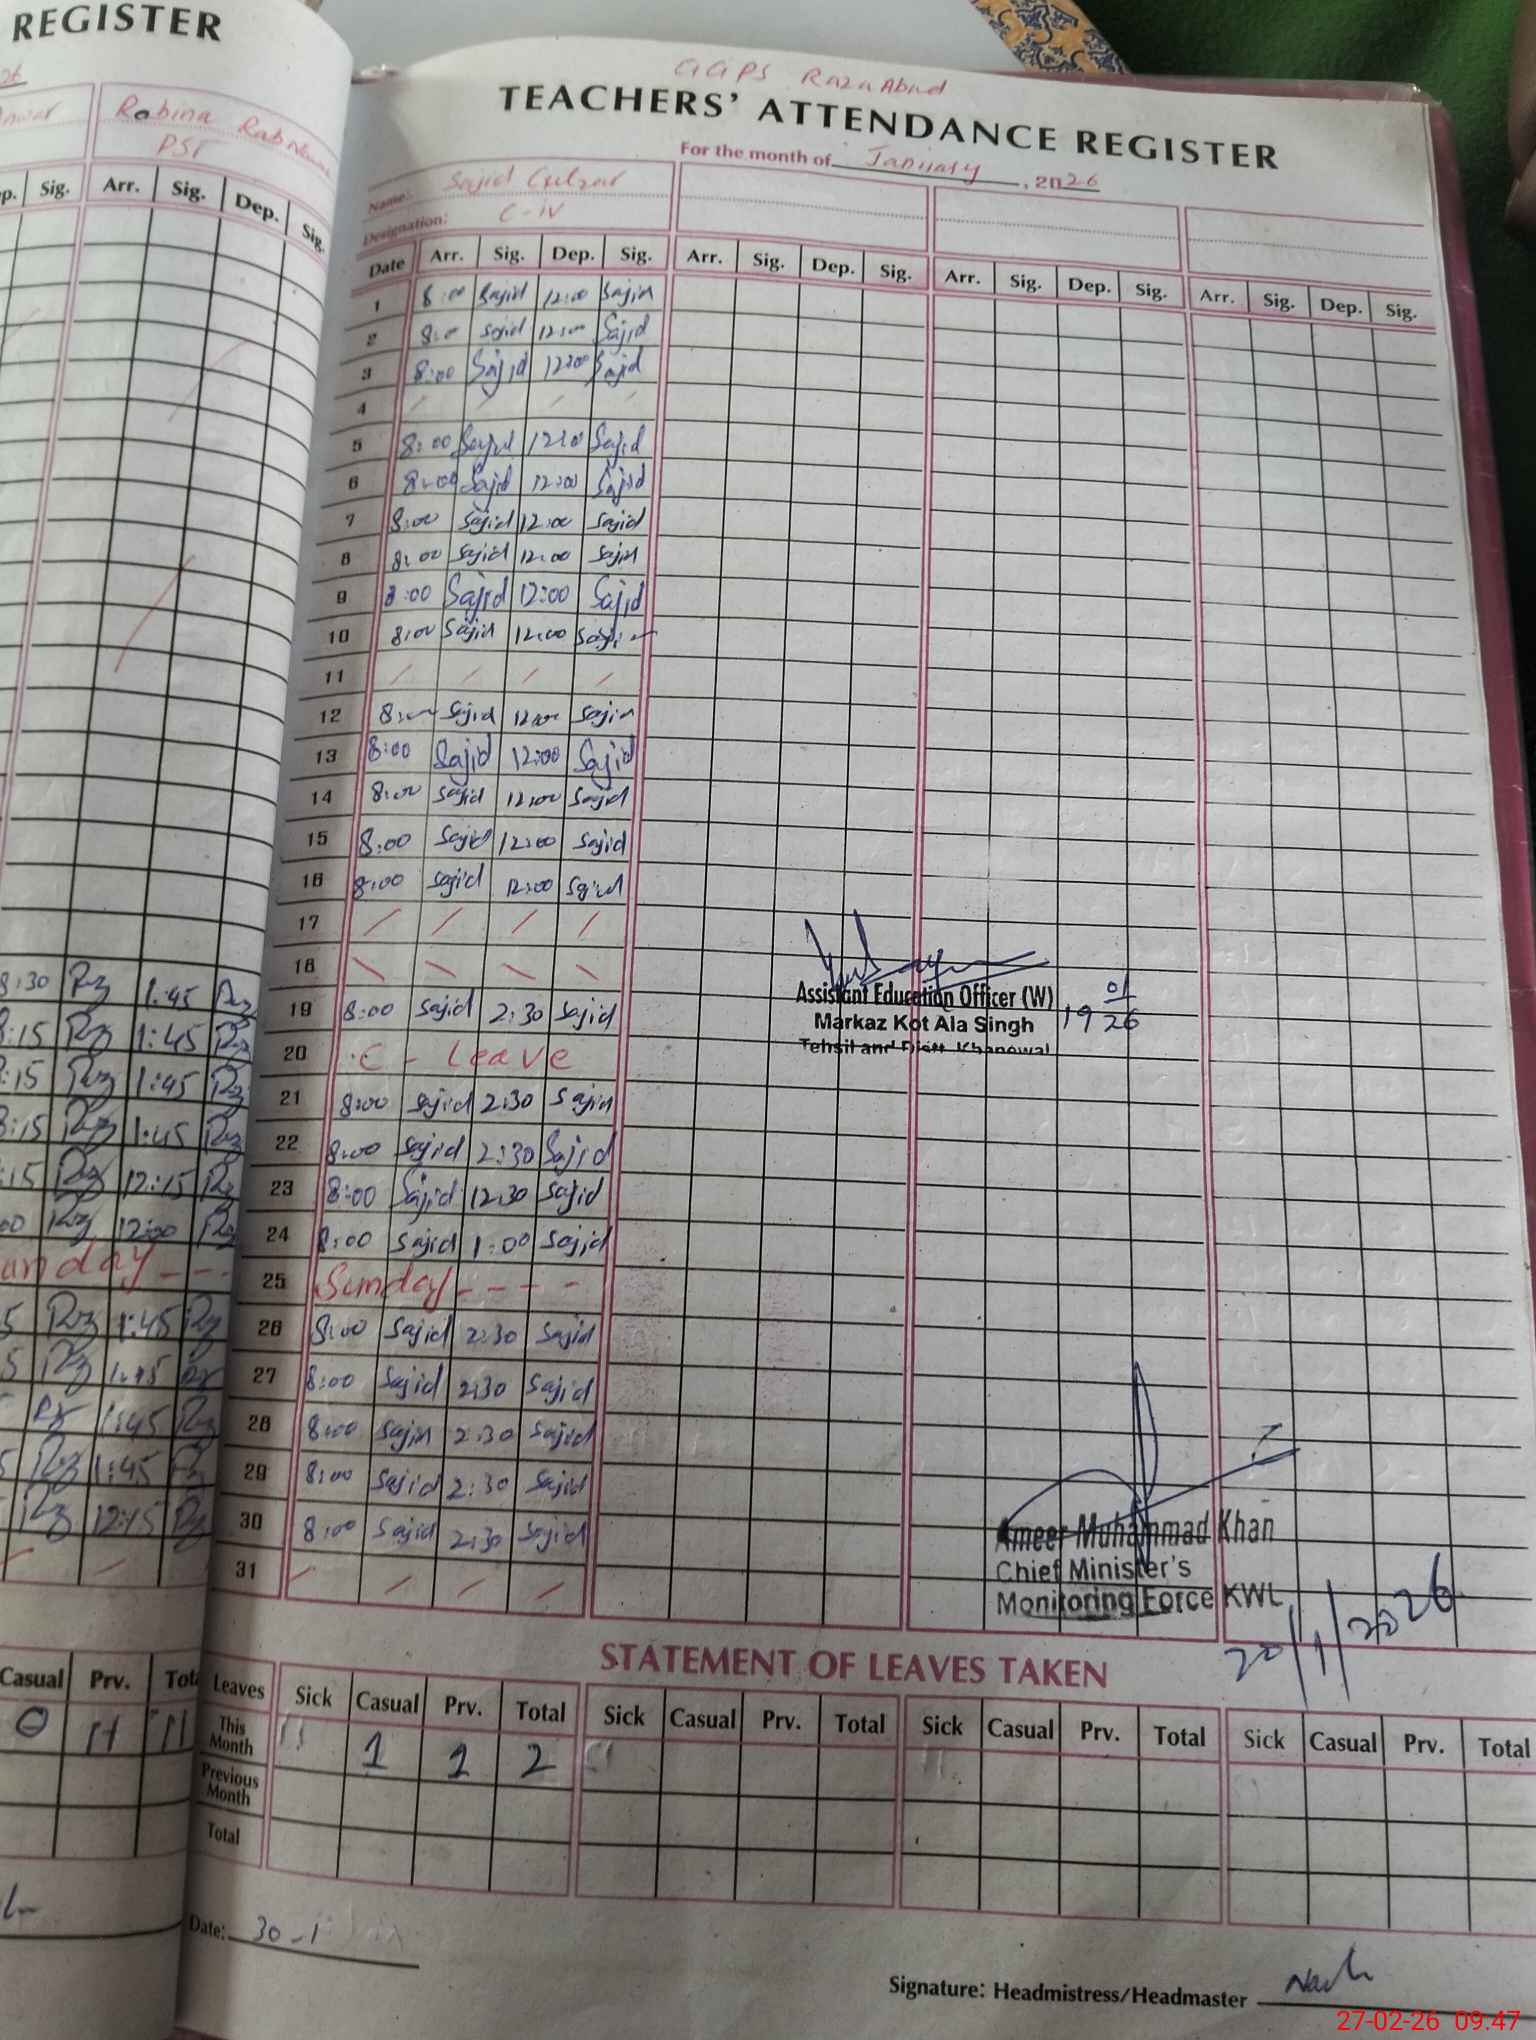 REGISTER
Robina Rab Nawaz
PST
Sig. Arr. Sig. Dep. Sig.
8:30 Rz 1:45 Rz
8:15 Rz 1:45 Rz
:15 Rz 1:45 Rz
8:15 Rz 1:45 Rz
:15 Rz 12:15 Rz
00 Rz 12:00 Rz
unday - - -
5 Rz 1:45 Rz
5 Rz 1:45 Rz
Rz 1:45 Rz
5 Rz 1:45 Rz
Rz 12:15 Rz
Casual Prv.
0 11 11
GGPS RazaAbad
TEACHERS' ATTENDANCE REGISTER
For the month of January, 2026
Name: Sajid Gulzar
Designation: C-IV
Date Arr. Sig. Dep. Sig. Arr. Sig. Dep. Sig. Arr. Sig. Dep. Sig. Arr. Sig. Dep. Sig.
1 8:00 Sajid 12:00 Sajid
2 8:00 Sajid 12:00 Sajid
3 8:00 Sajid 12:00 Sajid
4 / / / /
5 8:00 Sajid 12:00 Sajid
6 8:00 Sajid 12:00 Sajid
7 8:00 Sajid 12:00 Sajid
8 8:00 Sajid 12:00 Sajid
9 8:00 Sajid 12:00 Sajid
10 8:00 Sajid 12:00 Sajid
11 / / / /
12 8:00 Sajid 12:00 Sajid
13 8:00 Sajid 12:00 Sajid
14 8:00 Sajid 12:00 Sajid
15 8:00 Sajid 12:00 Sajid
16 8:00 Sajid 12:00 Sajid
17 / / / /
18 \ \ \ \
19 8:00 Sajid 2:30 Sajid
Assistant Education Officer (W)
Markaz Kot Ala Singh
Tehsil and Distt. Khanewal
19 01 26
20 C - Leave
21 8:00 Sajid 2:30 Sajid
22 8:00 Sajid 2:30 Sajid
23 8:00 Sajid 12:30 Sajid
24 8:00 Sajid 1:00 Sajid
25 Sunday - - - -
26 8:00 Sajid 2:30 Sajid
27 8:00 Sajid 2:30 Sajid
28 8:00 Sajid 2:30 Sajid
29 8:00 Sajid 2:30 Sajid
30 8:00 Sajid 2:30 Sajid
31 / / / /
Ameer Muhammad Khan
Chief Minister's
Monitoring Force KWL
20/1/2026
STATEMENT OF LEAVES TAKEN
Leaves Sick Casual Prv. Total Sick Casual Prv. Total Sick Casual Prv. Total Sick Casual Prv. Total
This Month 11 1 1 2
Previous Month
Total
Date: 30-1
Signature: Headmistress/Headmaster
27-02-26 09.47